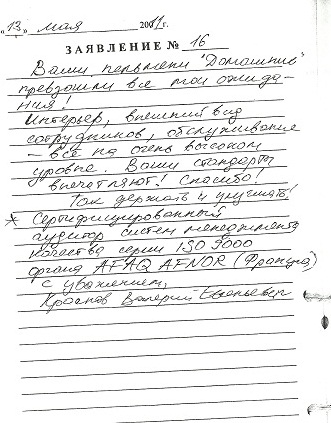 „13" мая 2011г.
ЗАЯВЛЕНИЕ № 16
Ваши пельмени "Домашние"
превзошли все мои ожида-
ния!
Интерьер, внешний вид
сотрудников, обслуживание
– все на очень высоком
уровне. Ваши стандарты
впечатляют! Спасибо!
Так держать и улучшать!
* Сертифицированный
аудитор систем менеджмента
качества серии ISO 9000
органа AFAQ AFNOR (Франция)
с уважением,
Краснов Валерий Евгеньевич